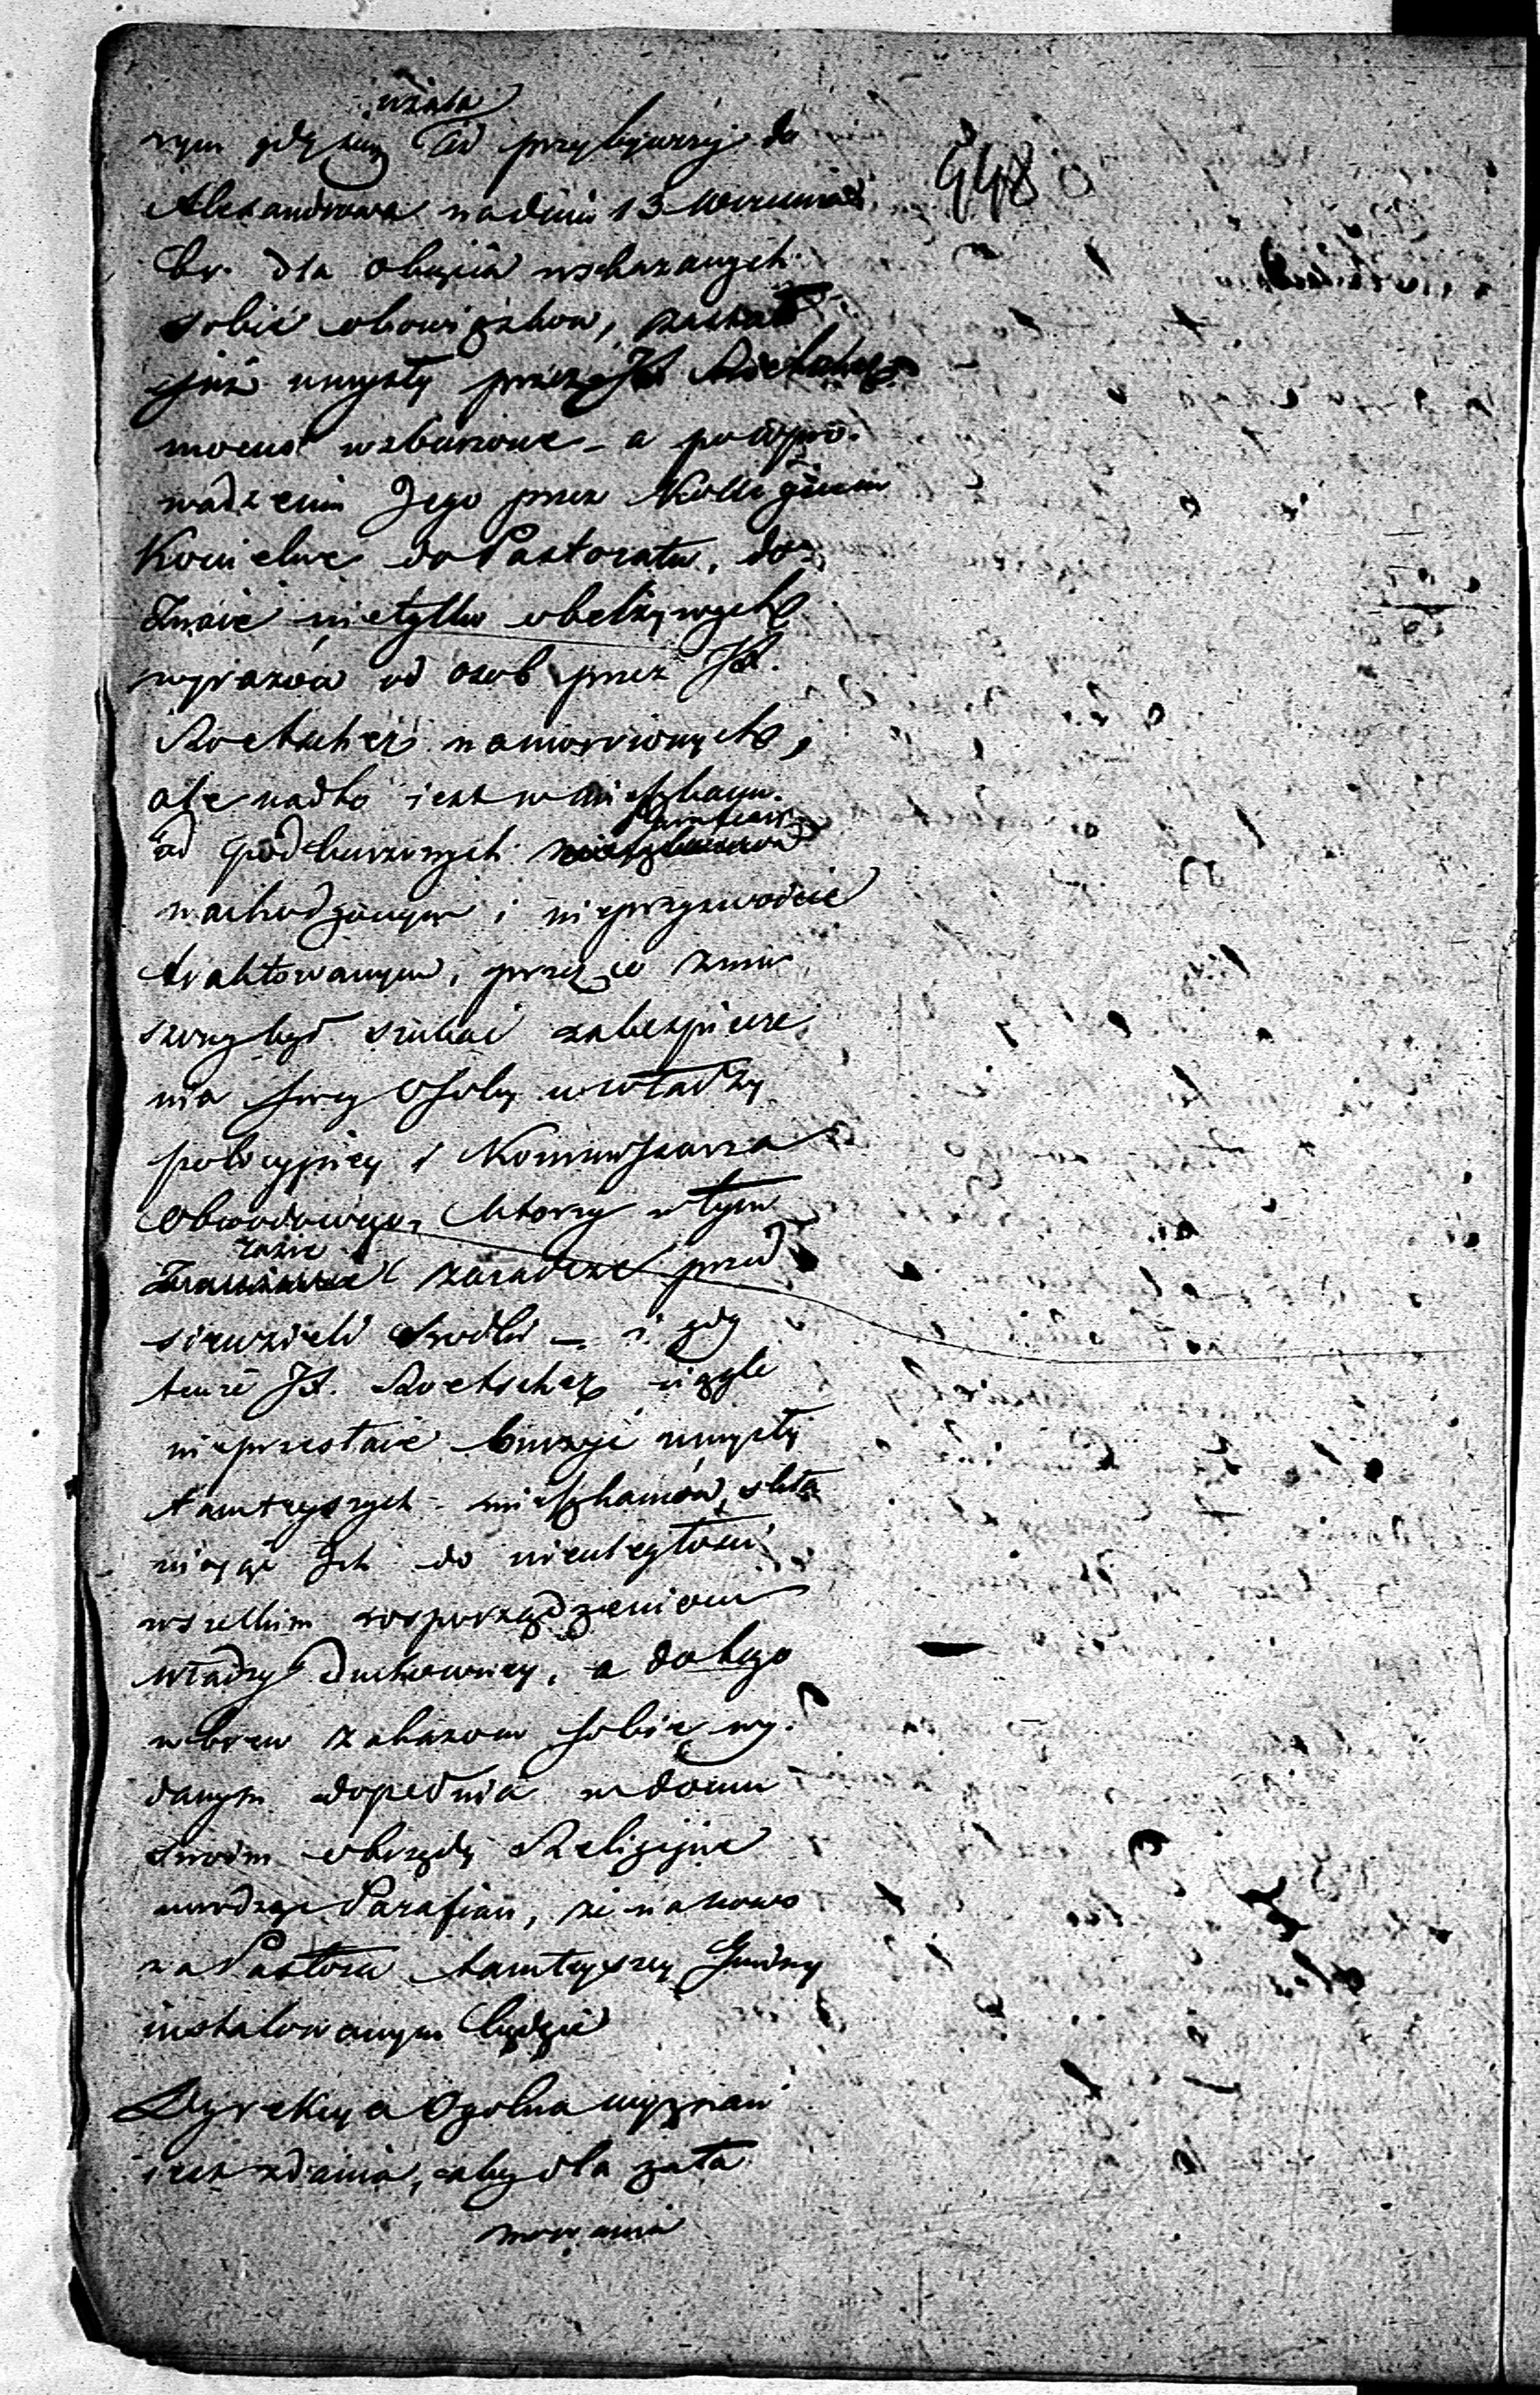 uznała
rym gdyż ten przybywszy do
Alexandrowa na dniu 13 Września
br. dla objęcia wskazanych
sobie obowiązków, zastał
już umysły przez JX Roetscher
mocno wzburzone – a po wpro-
wadzeniu Jego przez Kollegium
Kościelne do Pastoratu, do-
znaie nietylko obelżywych
wyrazów od osob przez JX.
Roetscher namówionych,
ale nadto iest w mieszkaniu
od podburzonych Parafian
nachodzonym i nieprzyzwoicie
traktowanym, przez co zmu-
szony był szukać zabezpiecze-
nia swey Osoby u władzy
policyjney i Kommissarza
Obwodowego, którzy w tym
razie zaradcze przed
siewzieli środki – i gdy
tenże JX. Roetscher ciągle
nieprzestaie burzyć umysły
tamtejszych mieszkańców, skła
niając Ich do nieuległości
wszelkim rosporządzeniom
władzy Duchowney, a do tego
wbrew zakazom sobie wy-
danym dopełnia w domu
swoim obrzędy Religijne
uwodząc Parafian, że nanowo
za Pastora tamtejszey Gminy
instalowanym będzie
Dyrekcya Ogólna wyznań
iest zdania, aby dla zata
mowania
448